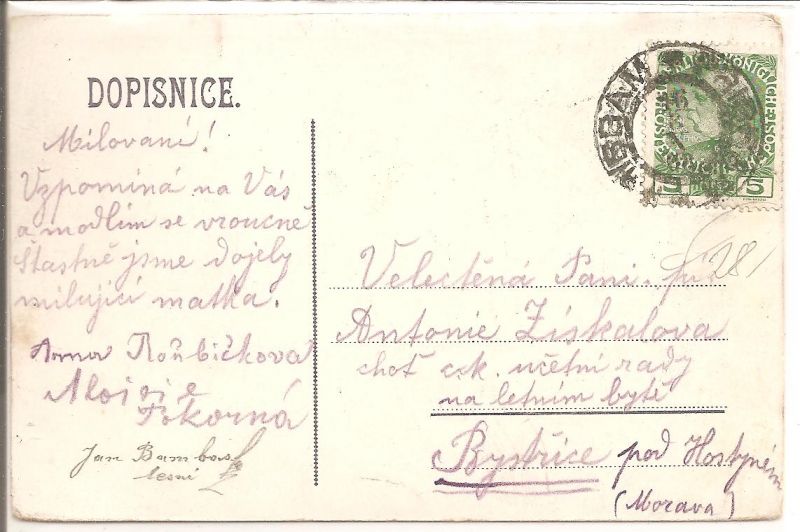 DOPISNICE.
Milovaní!
Vzpomíná na Vás
a modlím se vroucně
Šťastně jsme dojely
milující matka.
Anna Roubíčková
Aloisie
Pokorná
Jan Bambas
lesní
5 5
281
Velectěná Paní. pí
Antonie Získalova
choť csk. učetní rady
na letním bytě
Bystřice pod Hostýnem
(Morava)